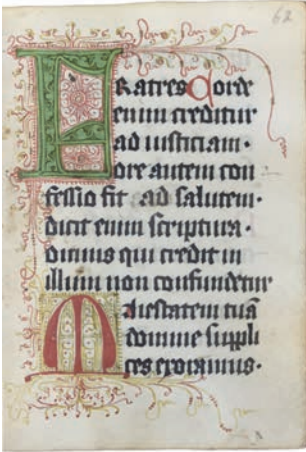 62
FRatres Corde
enim creditur
ad iusticiam·
ore autem con
fessio fit ad salutem·
dicit enim scriptura·
omnis qui credit in
illum non confundetur
Maiestatem tuā
domine suppli
ces exoramus·